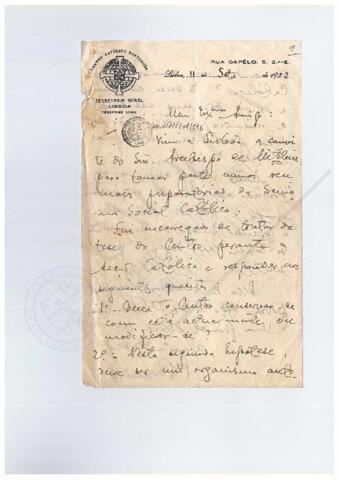 1
CENTRO CATÓLICO PORTUGUÊS
SECRETARIA GERAL
LISBOA
RUA CAPÊLO, 5, 2.º-E.
Lisboa, 11 de Set. de 1932
Meu Exmo Amigo:
Vim a Lisboa a convi
te do Snr. Arcebispo de Mitilene
para tomar parte numas reu
niões preparatorias da Sema
na Social Católica.
Fui encarregado de tratar da
tese do Centro perante a
Acção Católica e responder aos
seguintes quesitos:
1.º - Deve o Centro conservar-se
como está actualmente, ou
modificar-se?
2.º - Nesta segunda hipotese,
deve ser um organismo auto